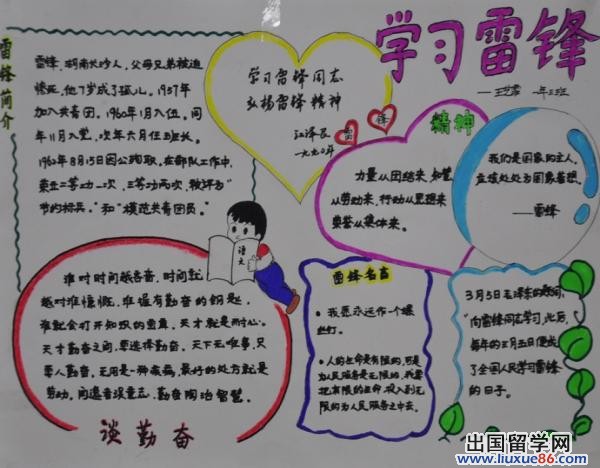 学习雷锋
一年三班
雷锋简介
雷锋,湖南长沙人,父母兄弟被迫
害死,他7岁成了孤儿。1957年
加入共青团。1960年1月入伍。同
年11月入党,次年六月任班长。
1962年8月15日因公殉职,在部队工作中,
荣立二等功一次,三等功两次,被评为“
节约标兵,”和“模范共青团员。”
学习雷锋同志
弘扬雷锋精神
江泽民
一九九〇年
雷
锋
精神
力量从团结来,智慧
从劳动来,行动从思想来
荣誉从集体来。
我们是国家的主人,
应该处处为国家着想。
——雷锋
谁对时间越吝啬,时间就
越对谁慷慨,谁握有勤奋的钥匙,
谁就会打开知识的宝库,天才就是耐心。
天才勤奋之间,要选择勤奋。天下无难事,只
要人勤奋。无聊是一种疾病,最好的处方就是
劳动。闲逸者没意志,勤奋陶冶智慧。
谈勤奋
语文
雷锋名言
• 我愿永远作一个螺
丝钉。
• 人的生命是有限的,可是
为人民服务是无限的,我要
把有限的生命,投入到无
限的为人民服务之中去。
3月5日毛泽东的题词,
“向雷锋同志学习”此后,
每年的三月五日便成
了全国人民学习雷锋
的日子。
出国留学网
www.liuxue86.com